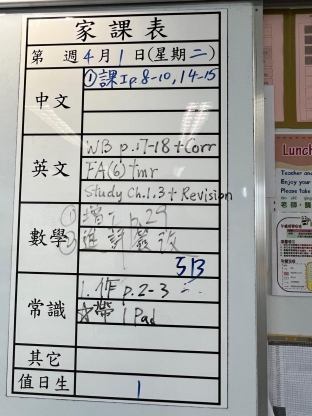 家課表
第 週 4月1日(星期二)
中文 ①課I p.8-10, 14-15
英文 WB p.17-18 + Corr
FA(6) + mr
Study Ch.1.3 + Revision
數學 ① p.29
②進評簽改
5B
常識 1.作 p.2-3
☆帶 iPad
其它
值日生 1
Lunch
Teacher and
Enjoy your
Please take